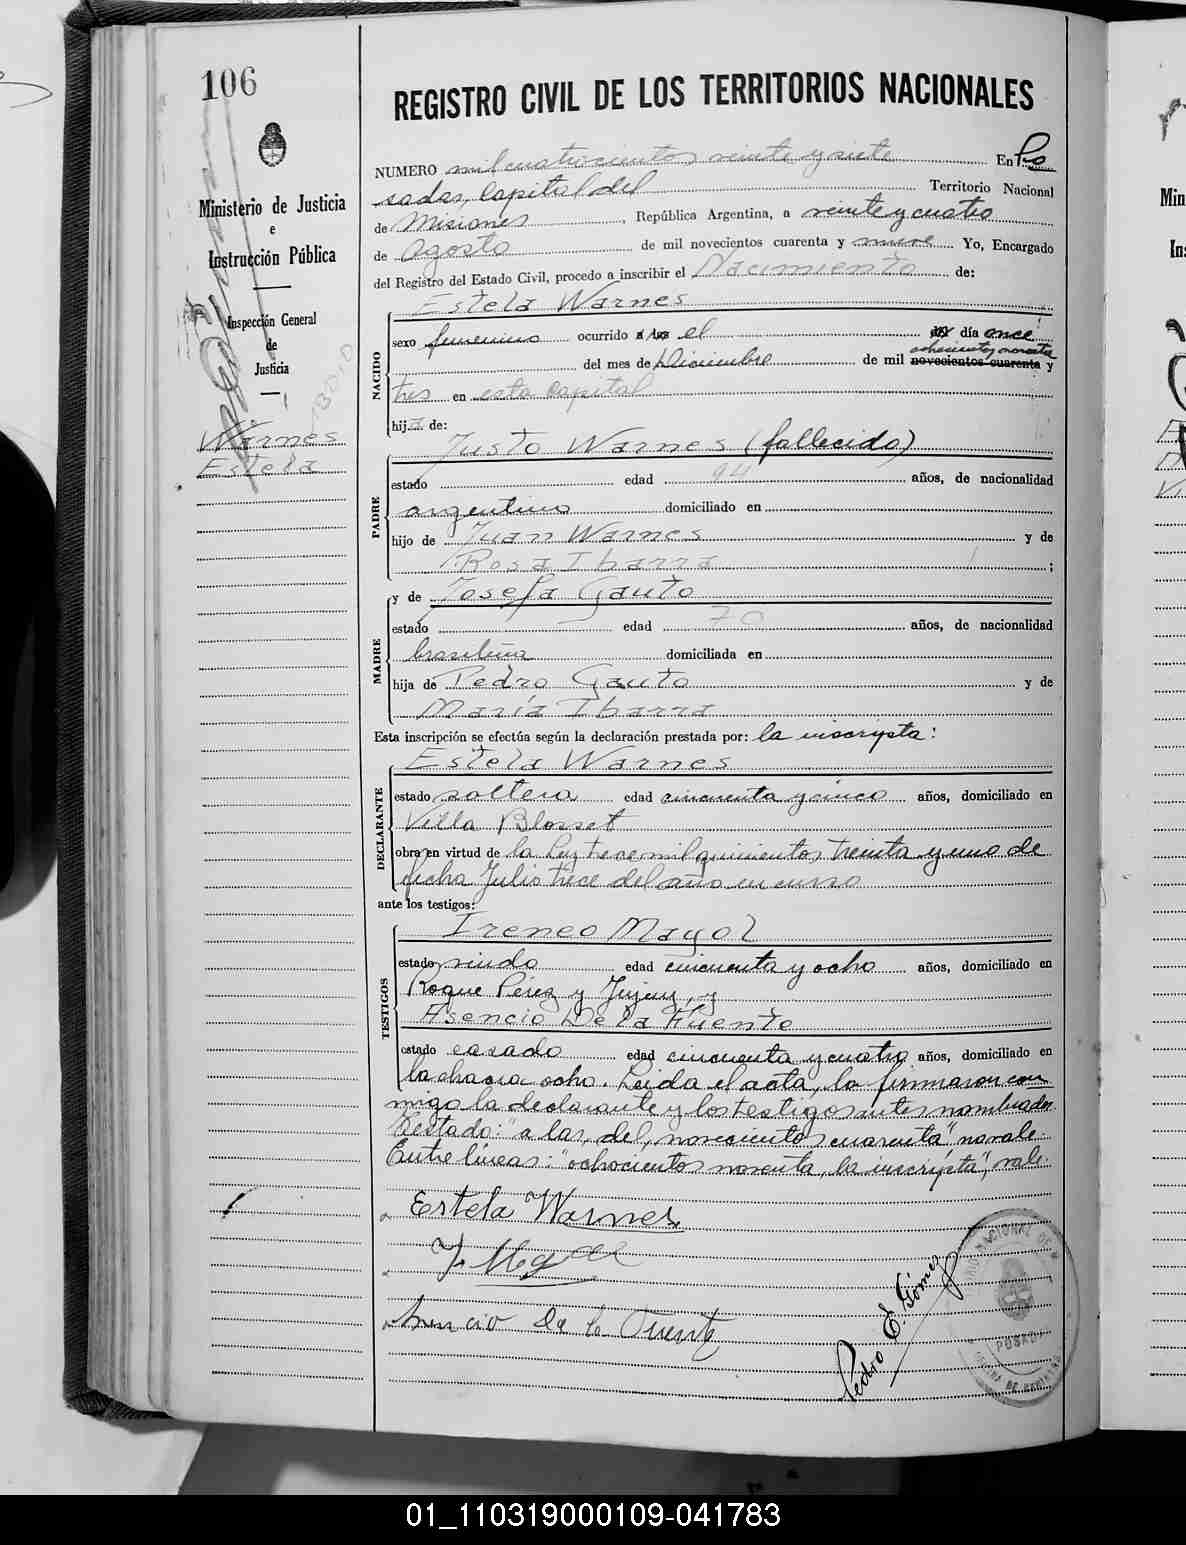 106
REGISTRO CIVIL DE LOS TERRITORIOS NACIONALES
Ministerio de Justicia
e
Instrucción Pública
Inspección General
de
Justicia
Warnes
Estela
NUMERO mil cuatrocientos veinte y siete En Po
sadas, Capital del Territorio Nacional
de Misiones, República Argentina, a veinte y cuatro
de agosto de mil novecientos cuarenta y nueve Yo, Encargado
del Registro del Estado Civil, procedo a inscribir el Nacimiento de:
Estela Warnes
NACIDO
sexo femenino ocurrido a las el del día once
ochocientos noventa
del mes de Diciembre de mil novecientos cuarenta y
tres en esta capital
hija de:
Justo Warnes (fallecido)
PADRE
estado edad 94 años, de nacionalidad
argentino domiciliado en
hijo de Juan Warnes y de
Rosa Ibarra ;
y de Josefa Gauto
MADRE
estado edad 70 años, de nacionalidad
brasileña domiciliada en
hija de Pedro Gauto y de
María Ibarra
Esta inscripción se efectúa según la declaración prestada por: la inscripta:
Estela Warnes
DECLARANTE
estado soltera edad cincuenta y cinco años, domiciliado en
Villa Blosset
obra en virtud de la Ley trece mil quinientos treinta y uno de
fecha Julio trece del año en curso
ante los testigos:
Ireneo Mayol
TESTIGOS
estado viudo edad cincuenta y ocho años, domiciliado en
Roque Pérez y Jujuy, y
Asencio De la Fuente
estado casado edad cincuenta y cuatro años, domiciliado en
la chacra ocho. Leida el acta, la firmaron con
migo la declarante y los testigos antes nombrados
Testado: "a las, del, novecientos cuarenta" no vale.
Entre líneas: "ochocientos noventa, la inscripta", vale.
Estela Warnes
Asencio De la Fuente
Pedro E. Gómez
POSADAS
01_110319000109-041783